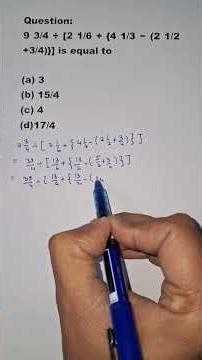 Question:
9 3/4 ÷ [2 1/6 + {4 1/3 − (2 1/2
+3/4)}] is equal to
(a) 3
(b) 15/4
(c) 4
(d)17/4
9 3/4 ÷ [ 2 1/6 + { 4 1/3 − ( 2 1/2 + 3/4 ) } ]
= 39/4 ÷ [ 13/6 + { 13/3 − ( 5/2 + 3/4 ) } ]
= 39/4 ÷ [ 13/6 + { 13/3 − (